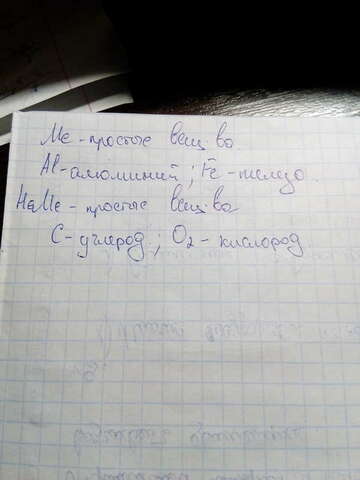 Me - простые вещ-ва.
Al - алюминий; Fe - железо.
НеMe - простые вещ-ва
C - углерод; O₂ - кислород